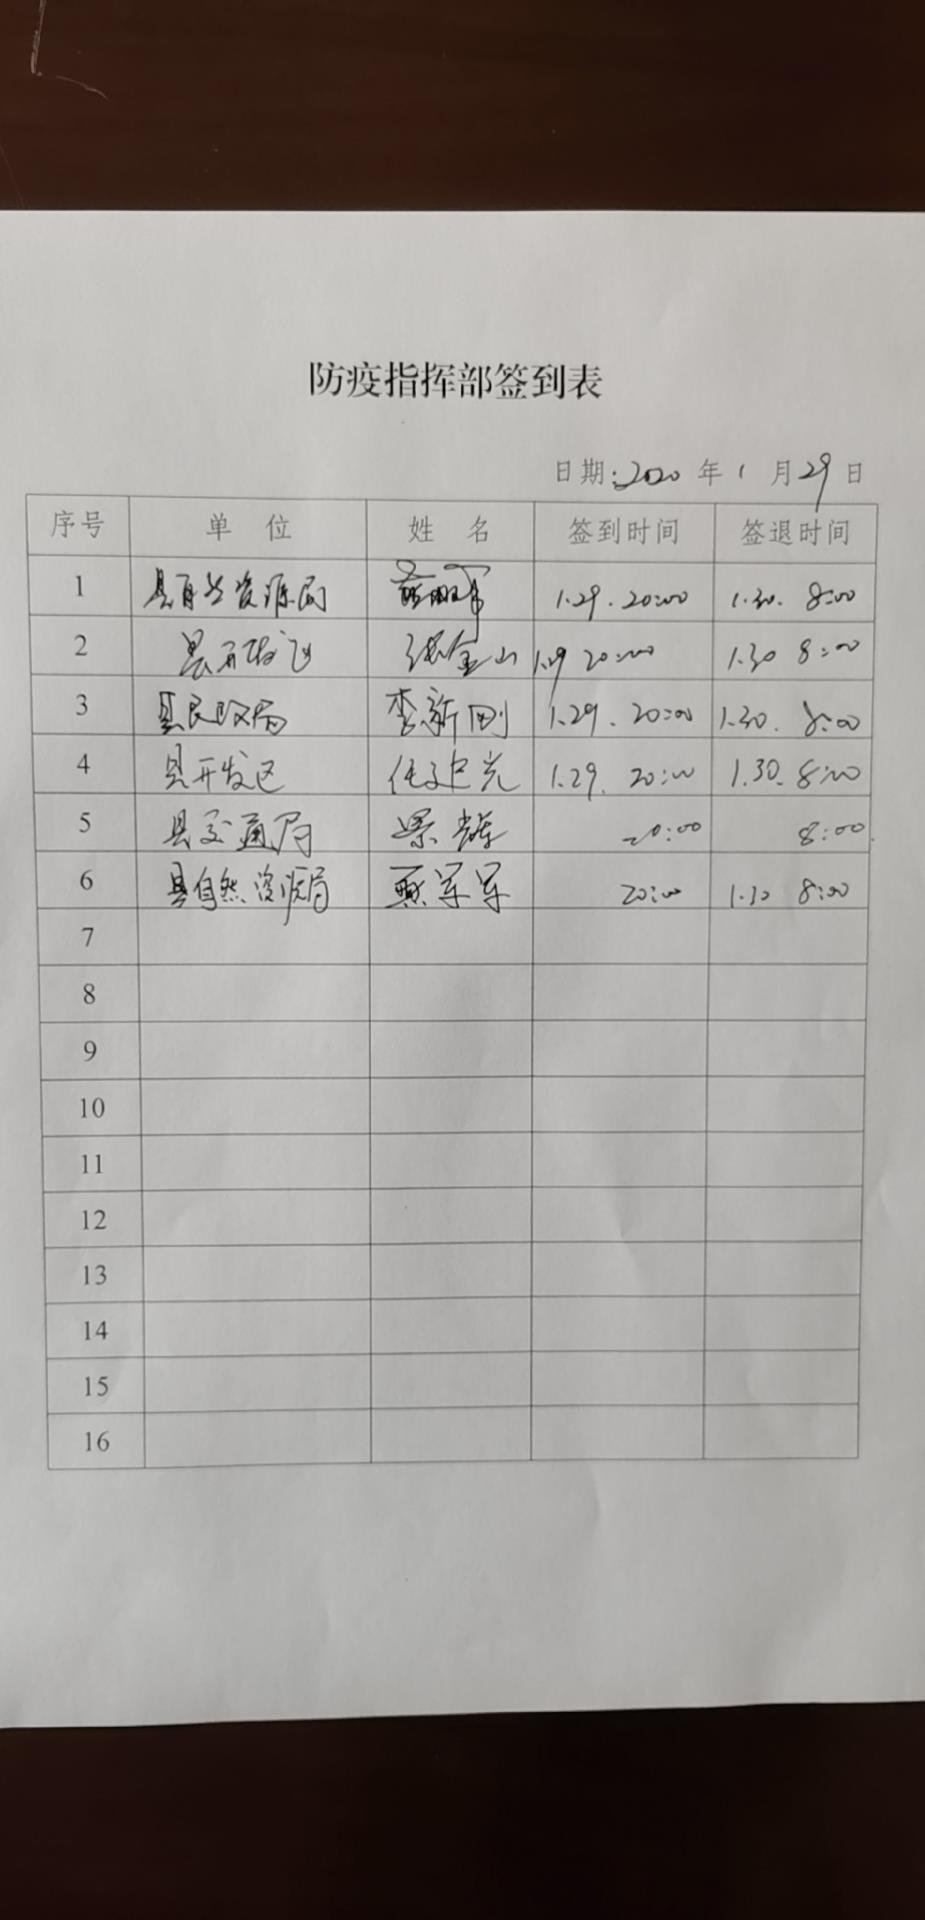 防疫指挥部签到表
日期:2020 年 1 月 29 日
序号 单 位 姓 名 签到时间 签退时间
1 县自然资源局 1.29. 20:00 1.30. 8:00
2 县开发区 张金山 1.29 20:00 1.30 8:00
3 县民政局 李新刚 1.29. 20:00 1.30. 8:00
4 县开发区 1.29. 20:00 1.30. 8:00
5 县交通局 景辉 20:00 8:00.
6 县自然资源局 军军 20:00 1.30 8:00
7
8
9
10
11
12
13
14
15
16